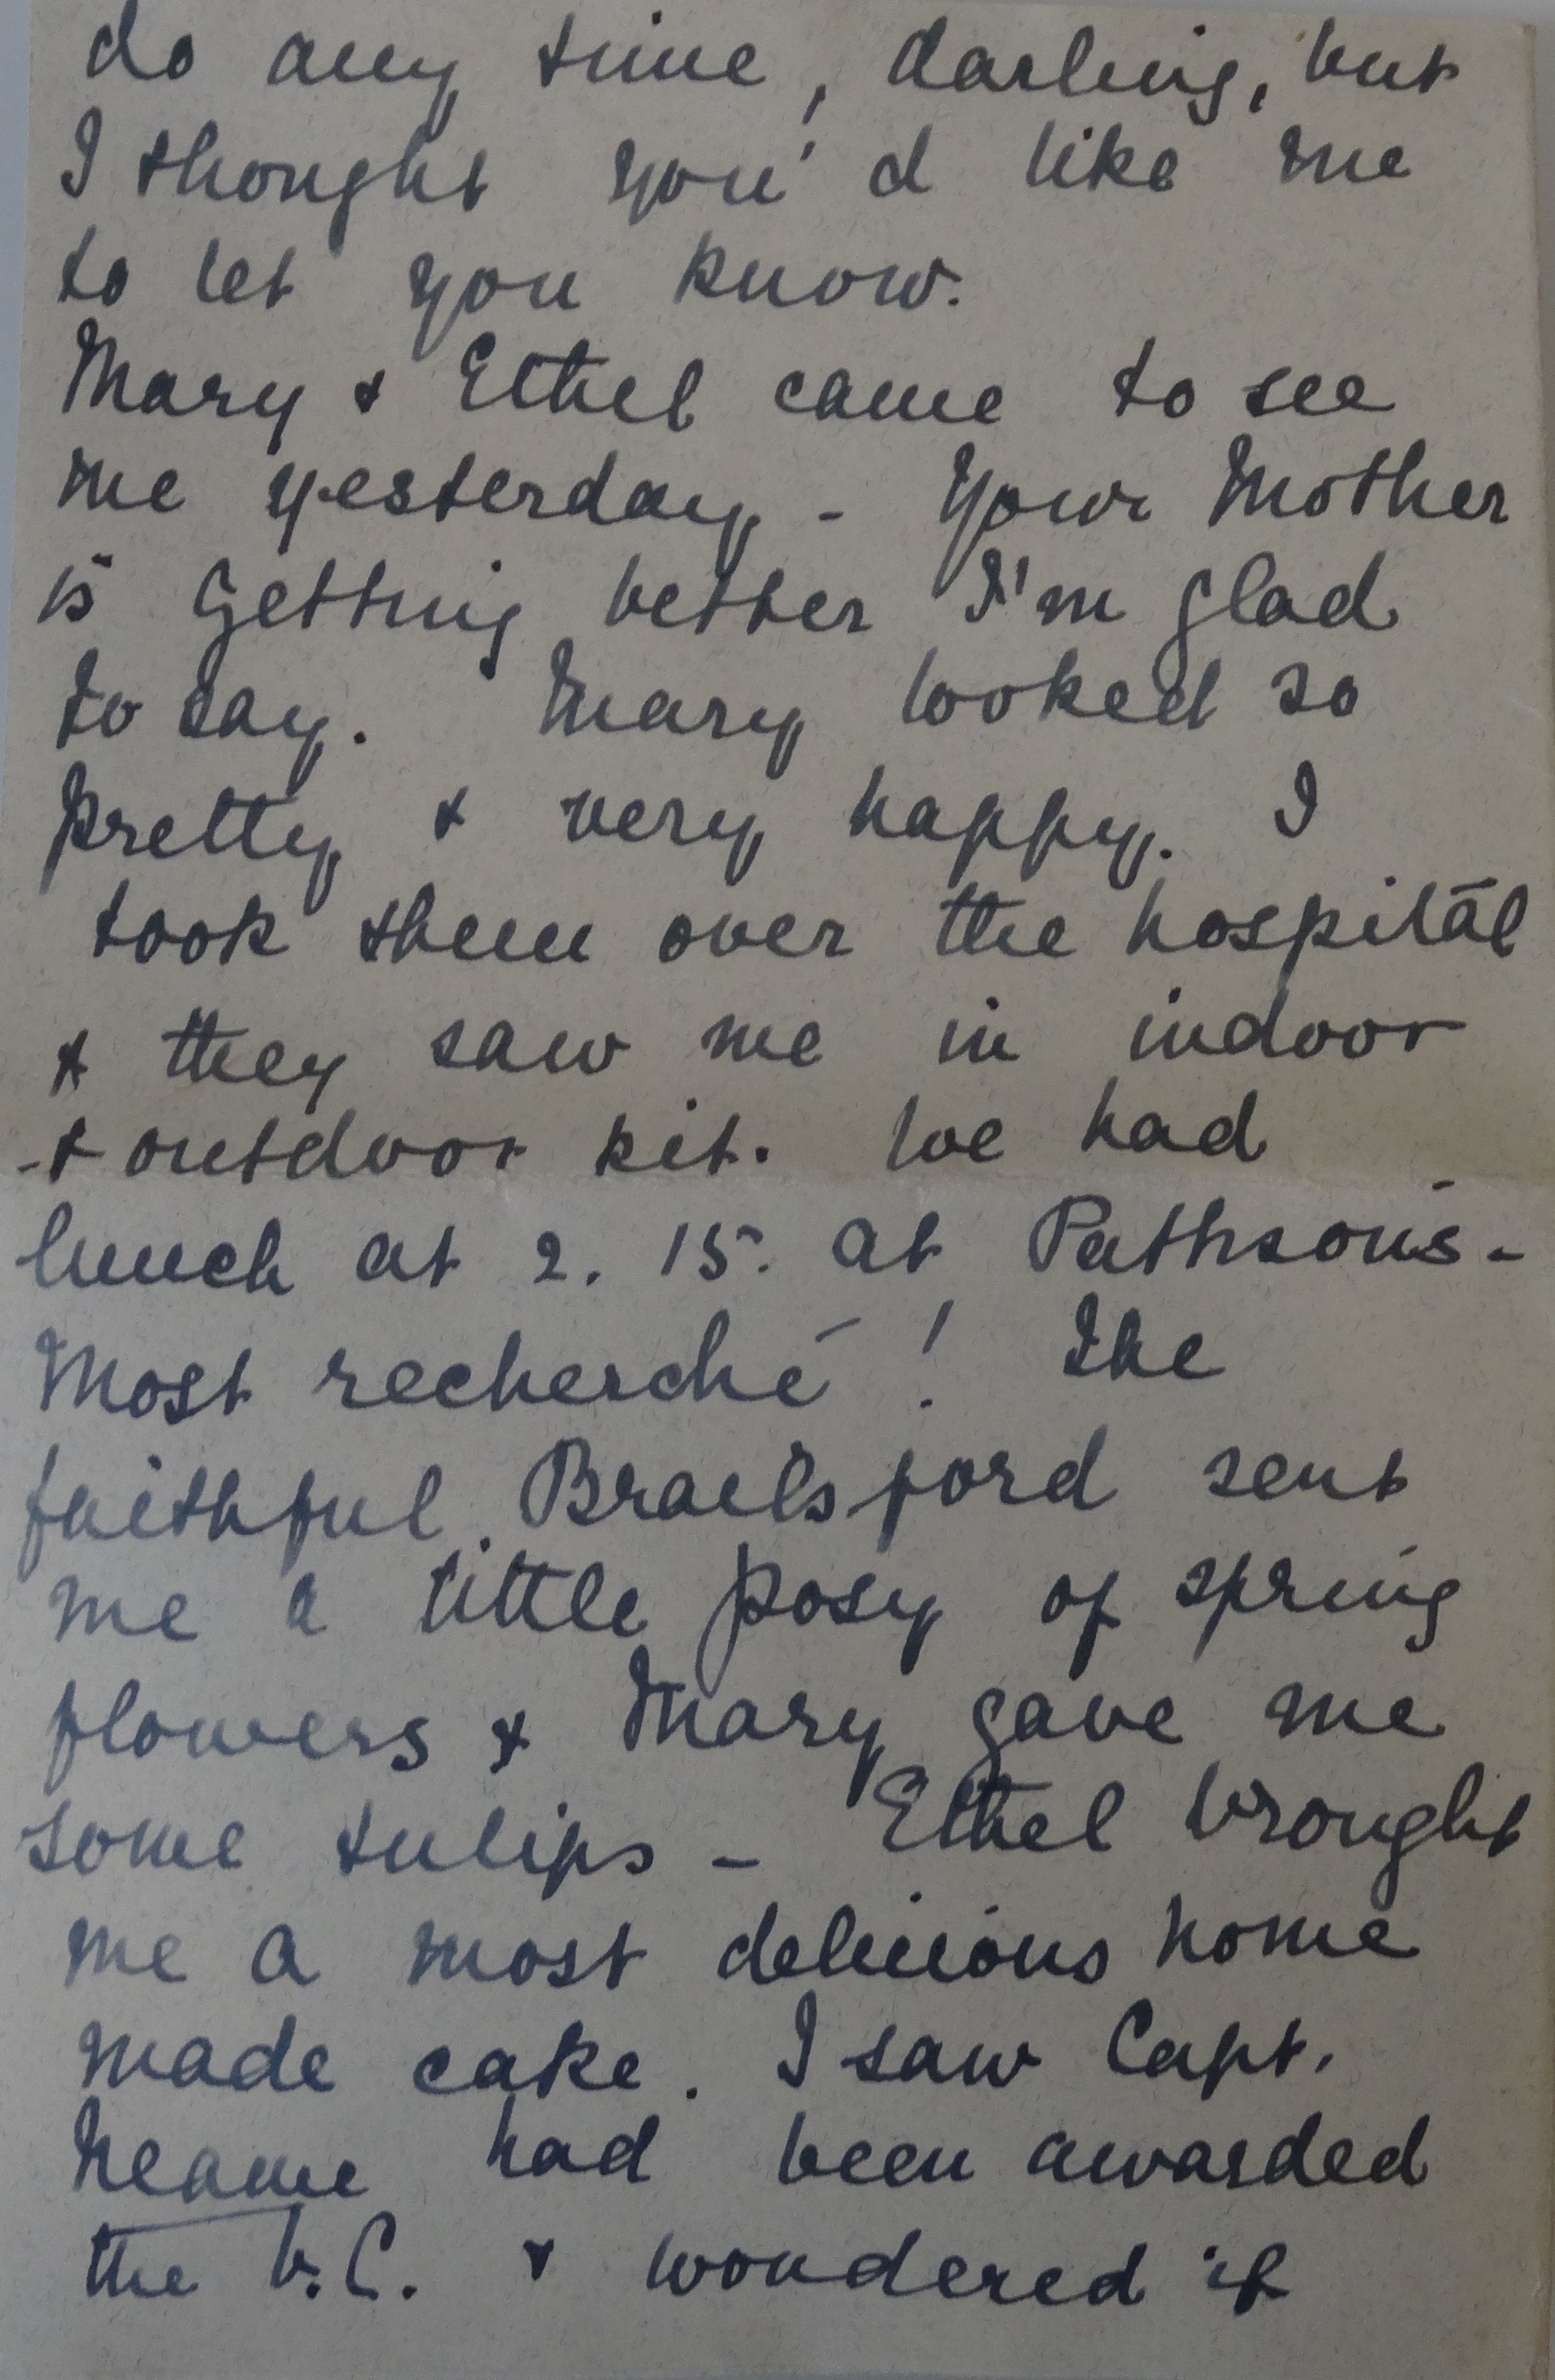 do any time, darling, but
I thought you'd like me
to let you know.
Mary & Ethel came to see
me yesterday - Your Mother
is getting better I'm glad
to say. Mary looked so
pretty & very happy. I
took them over the hospital
& they saw me in indoor
& outdoor kit. We had
lunch at 2.15. at Pattison's -
Most recherché! The
faithful Brailsford sent
me a little posy of spring
flowers & Mary gave me
some tulips - Ethel brought
me a most delicious home
made cake. I saw Capt.
Neame had been awarded
the V.C. & wondered if